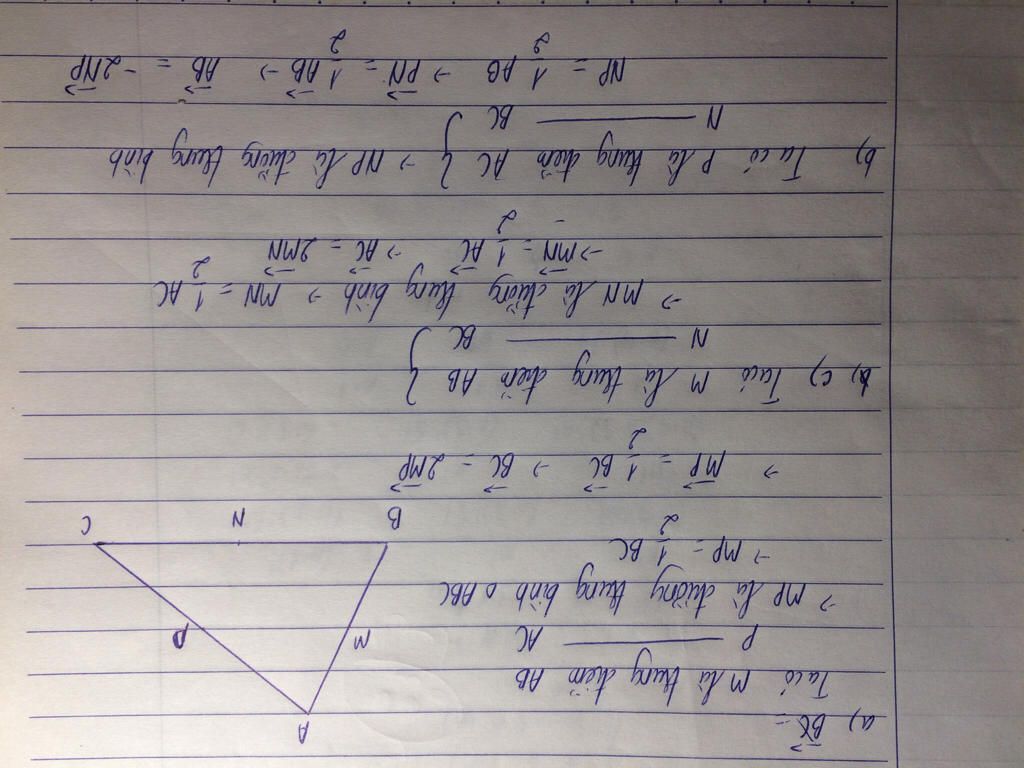 a) BC =
Ta có M là trung điểm AB
P ——— AC
→ MP là đường trung bình △ ABC
→ MP = 1/2 BC
→ MP = 1/2 BC → BC = 2MP
A
M
P
B
N
C
c) Ta có M là trung điểm AB }
N ——— BC
→ MN là đường trung bình → MN = 1/2 AC
→ MN = 1/2 AC → AC = 2MN
b) Ta có P là trung điểm AC } → NP là đường trung bình
N ——— BC
NP = 1/2 AB → PN = 1/2 AB → AB = -2NP